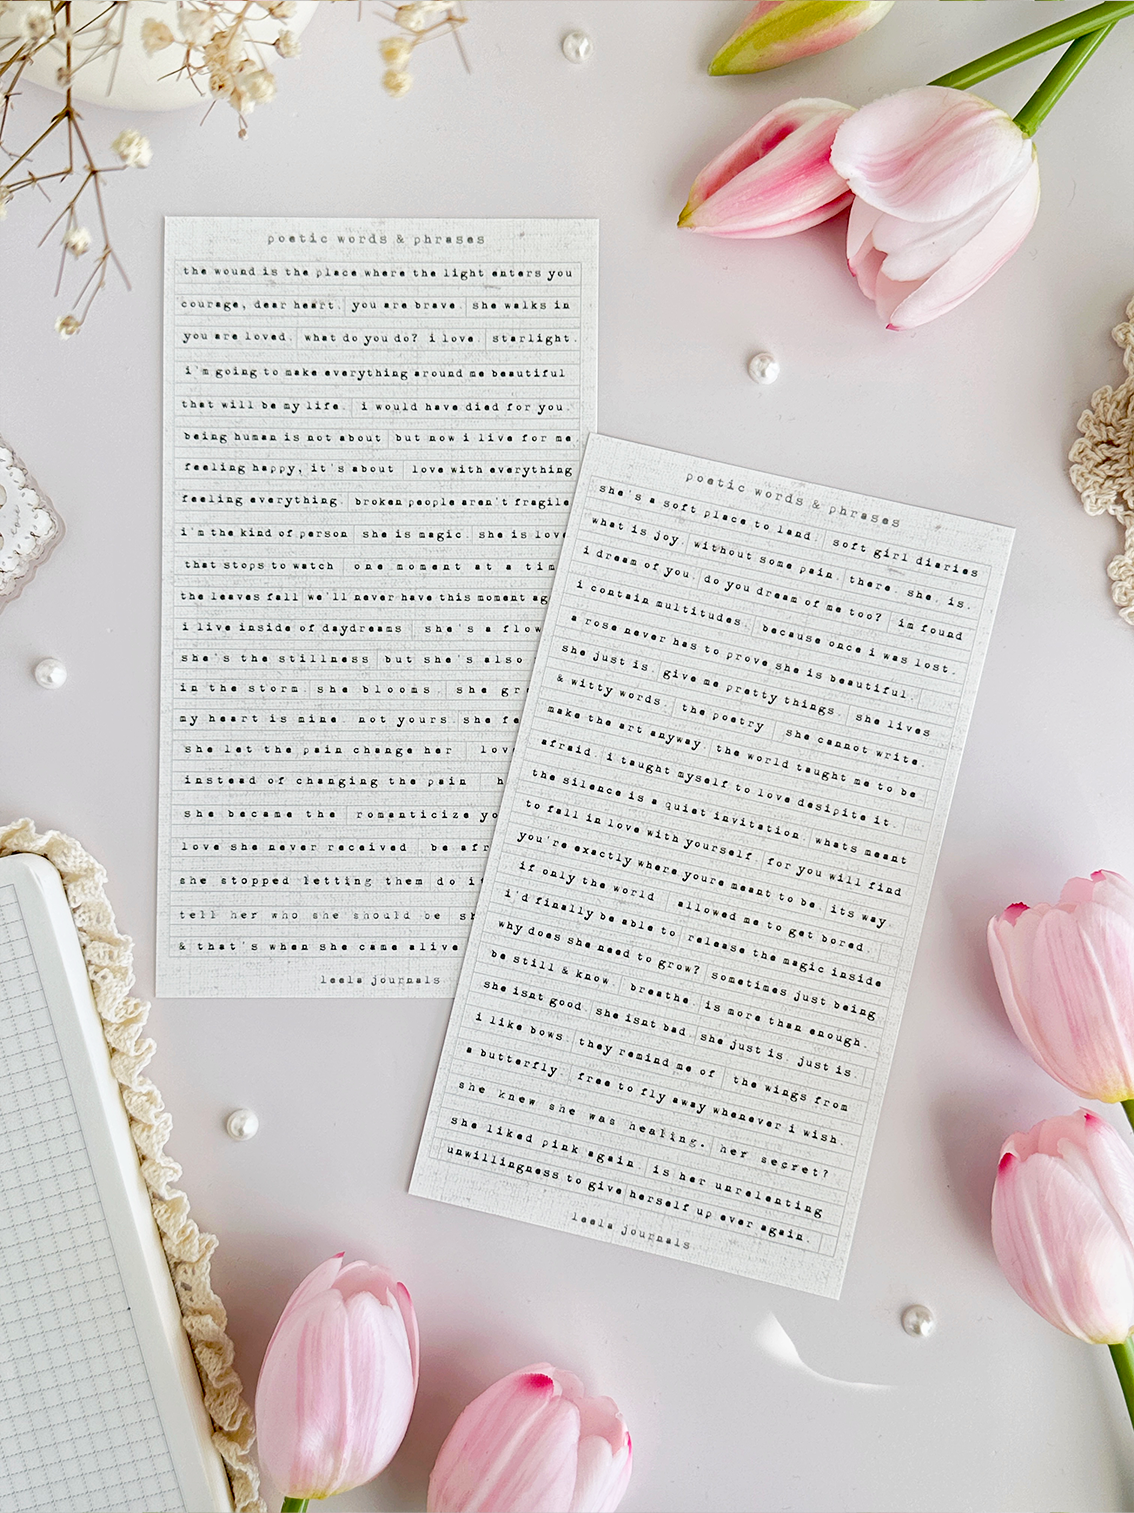 poetic words & phrases
the wound is the place where the light enters you
courage, dear heart. you are brave. she walks in
you are loved. what do you do? i love starlight.
i'm going to make everything around me beautiful
that will be my life. i would have died for you.
being human is not about but now i live for me
feeling happy, it's about love with everything
feeling everything. broken people aren't fragile
i'm the kind of person she is magic. she is love
that stops to watch one moment at a tim
the leaves fall we'll never have this moment ag
i live inside of daydreams she's a flow
she's the stillness but she's also
in the storm. she blooms. she gr
my heart is mine. not yours. she fe
she let the pain change her lov
instead of changing the pain h
she became the romanticize yo
love she never received be afr
she stopped letting them do i
tell her who she should be sh
& that's when she came alive
leela journals
poetic words & phrases
she's a soft place to land. soft girl diaries
what is joy. without some pain. there. she. is.
i dream of you. do you dream of me too? im found
i contain multitudes. because once i was lost.
a rose never has to prove she is beautiful.
she just is. give me pretty things. she lives
& witty words. the poetry she cannot write.
make the art anyway. the world taught me to be
afraid. i taught myself to love desipite it.
the silence is a quiet invitation. whats meant
to fall in love with yourself for you will find
you're exactly where youre meant to be. its way
if only the world allowed me to get bored.
i'd finally be able to release the magic inside
why does she need to grow? sometimes just being
be still & know. breathe is more than enough.
she isnt good. she isnt bad. she just is. just is.
i like bows. they remind me of the wings from
a butterfly. free to fly away whenever i wish.
she knew she was healing. her secret?
she liked pink again is her unrelenting
unwillingness to give herself up ever again.
leela journals